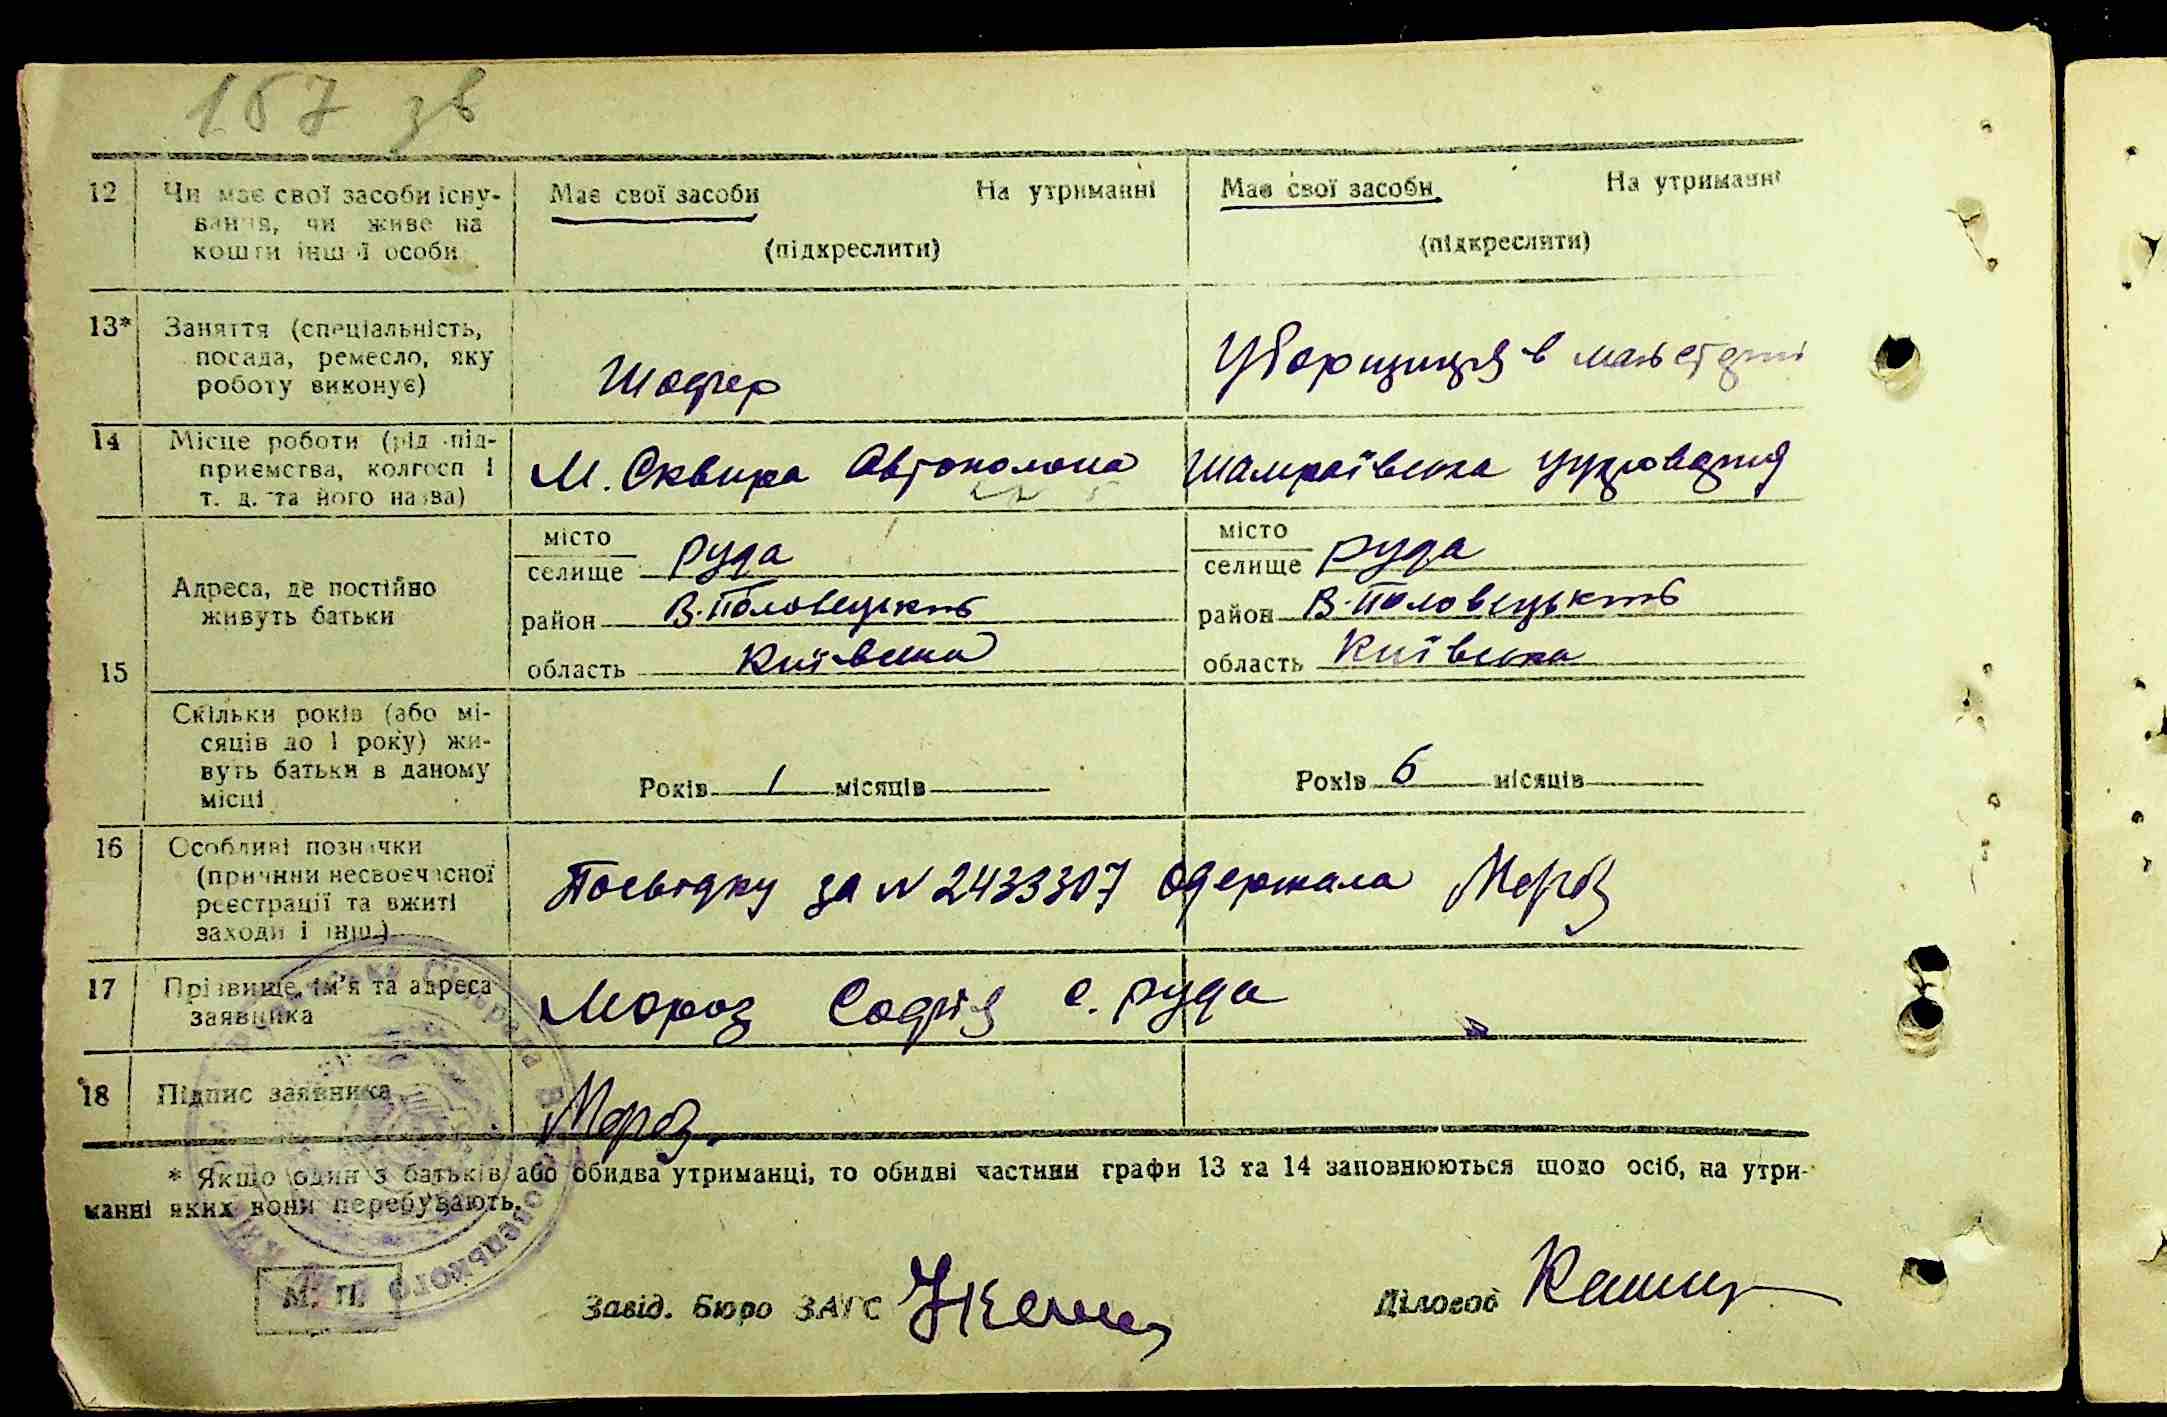 167 зв
12 Чи має свої засоби існу-
вання, чи живе на
кошти іншої особи
Має свої засоби На утриманні
(підкреслити)
Має свої засоби На утриманні
(підкреслити)
13* Заняття (спеціальність,
посада, ремесло, яку
роботу виконує)
Шофер
Уборщиця в
14 Місце роботи (рід під-
приємства, колгосп і
т. д. та його назва)
М. Сквира Автоколона
Шамраївська
15 Адреса, де постійно
живуть батьки
місто
селище Руда
район В-Половецький
область Київська
місто
селище Руда
район В-Половецький
область Київська
Скільки років (або мі-
сяців до 1 року) жи-
вуть батьки в даному
місці
Років 1 місяців
Років 6 місяців
16 Особливі позначки
(причини несвоєчасної
реєстрації та вжиті
заходи і інш.)
Посвідку за N 2433307 одержала Мороз
17 Прізвище, ім'я та адреса
заявника
Мороз Софія с. Руда
18 Підпис заявника
Мороз.
* Якщо один з батьків або обидва утриманці, то обидві частини графи 13 та 14 заповнюються щодо осіб, на утри-
манні яких вони перебувають.
М. П.
Завід. Бюро ЗАГС
Діловод